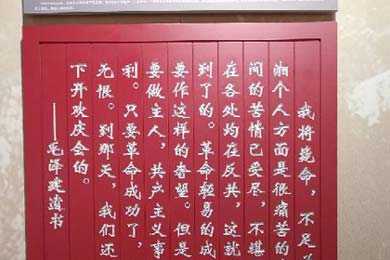 我将毙命，不足
湘个人方面是很痛苦的
间的苦情已受尽，不堪
在各处均在反共，这就
到了的。革命轻易的成
要作这样的奢望。但是
要做主人，共产主义事
利。只要革命成功了，
无恨。到那天，我们还
下开欢庆会的。
——毛泽建遗书